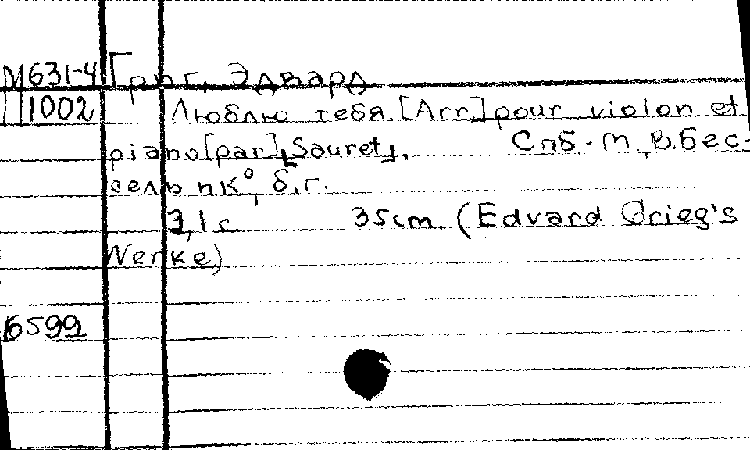 М631-4 Григ, Эдвард
11002 Люблю тебя. [Arr] pour violon et
piano [par] Sauret.
Спб.-М, В. Бес-
сель и К°, б.г.
3,1 с 35 cm (Edvard Grieg's
Werke)
6599